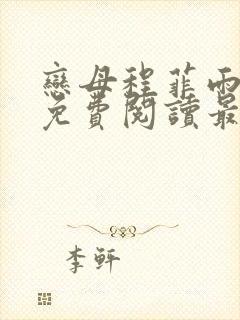 戀母程菲雨
免費閱讀最
李軒